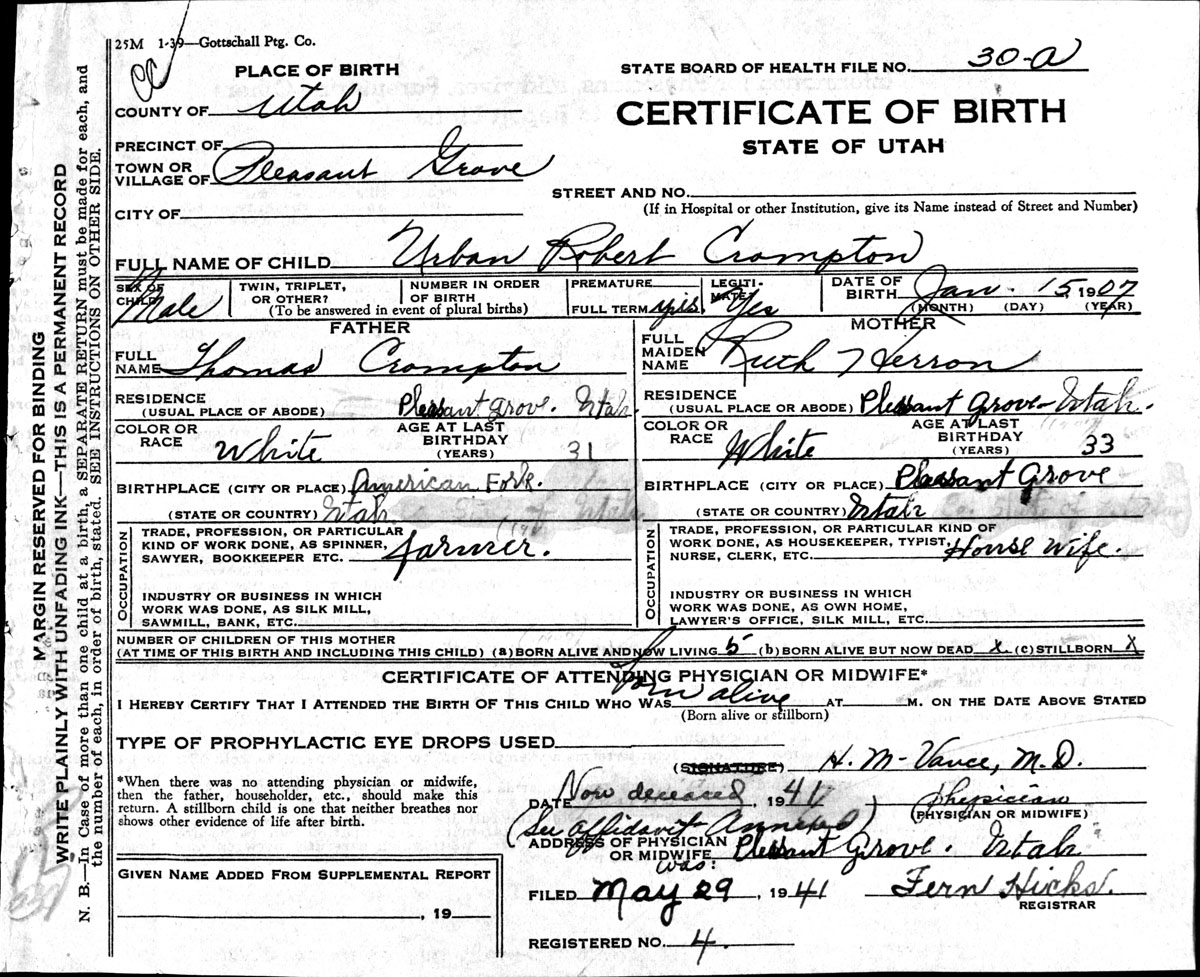 25M 1-39—Gottschall Ptg. Co.
PLACE OF BIRTH
STATE BOARD OF HEALTH FILE NO. 30-a
COUNTY OF Utah
CERTIFICATE OF BIRTH
STATE OF UTAH
PRECINCT OF
TOWN OR VILLAGE OF Pleasant Grove
STREET AND NO.
(If in Hospital or other Institution, give its Name instead of Street and Number)
CITY OF
FULL NAME OF CHILD Urban Robert Crompton
SEX OF CHILD Male
TWIN, TRIPLET, OR OTHER?
NUMBER IN ORDER OF BIRTH
(To be answered in event of plural births)
PREMATURE
FULL TERM yes
LEGITIMATE? Yes
DATE OF BIRTH Jan. 15, 1907
(MONTH) (DAY) (YEAR)
FATHER
FULL NAME Thomas Crompton
RESIDENCE
(USUAL PLACE OF ABODE) Pleasant Grove. Utah.
COLOR OR RACE White
AGE AT LAST BIRTHDAY (YEARS) 31
BIRTHPLACE (CITY OR PLACE) American Fork.
(STATE OR COUNTRY) Utah
OCCUPATION
TRADE, PROFESSION, OR PARTICULAR
KIND OF WORK DONE, AS SPINNER,
SAWYER, BOOKKEEPER ETC. farmer.
INDUSTRY OR BUSINESS IN WHICH
WORK WAS DONE, AS SILK MILL,
SAWMILL, BANK, ETC.
MOTHER
FULL MAIDEN NAME Ruth Herron
RESIDENCE
(USUAL PLACE OR ABODE) Pleasant Grove- Utah.
COLOR OR RACE White
AGE AT LAST BIRTHDAY (YEARS) 33
BIRTHPLACE (CITY OR PLACE) Pleasant Grove
(STATE OR COUNTRY) Utah
OCCUPATION
TRADE, PROFESSION, OR PARTICULAR KIND OF
WORK DONE, AS HOUSEKEEPER, TYPIST,
NURSE, CLERK, ETC. House Wife.
INDUSTRY OR BUSINESS IN WHICH
WORK WAS DONE, AS OWN HOME,
LAWYER'S OFFICE, SILK MILL, ETC.
NUMBER OF CHILDREN OF THIS MOTHER
(AT TIME OF THIS BIRTH AND INCLUDING THIS CHILD) (a) BORN ALIVE AND NOW LIVING 5 (b) BORN ALIVE BUT NOW DEAD x (c) STILLBORN X
CERTIFICATE OF ATTENDING PHYSICIAN OR MIDWIFE*
I HEREBY CERTIFY THAT I ATTENDED THE BIRTH OF THIS CHILD WHO WAS born alive AT M. ON THE DATE ABOVE STATED
(Born alive or stillborn)
TYPE OF PROPHYLACTIC EYE DROPS USED
*When there was no attending physician or midwife,
then the father, householder, etc., should make this
return. A stillborn child is one that neither breathes nor
shows other evidence of life after birth.
(SIGNATURE) H. M- Vance, M.D.
DATE Now deceased, 1941
physician
(PHYSICIAN OR MIDWIFE)
(See affidavit Annexed)
ADDRESS OF PHYSICIAN OR MIDWIFE was: Pleasant Grove. Utah
GIVEN NAME ADDED FROM SUPPLEMENTAL REPORT
, 19
FILED May 29, 1941 Fern Hicks.
REGISTRAR
REGISTERED NO. 4.
MARGIN RESERVED FOR BINDING
WRITE PLAINLY WITH UNFADING INK—THIS IS A PERMANENT RECORD
N. B.—In Case of more than one child at a birth, a SEPARATE RETURN must be made for each, and
the number of each, in order of birth, stated. SEE INSTRUCTIONS ON OTHER SIDE.